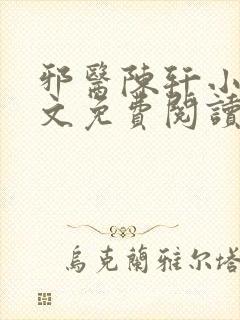 邪醫陳軒小
文免費閱讀
烏克蘭雅尔塔